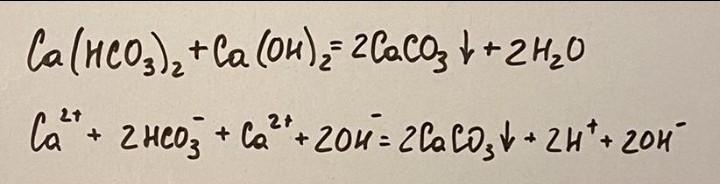 Ca(HCO₃)₂ + Ca(OH)₂ = 2CaCO₃↓ + 2H₂O
Ca²⁺ + 2HCO₃⁻ + Ca²⁺ + 2OH⁻ = 2CaCO₃↓ + 2H⁺ + 2OH⁻